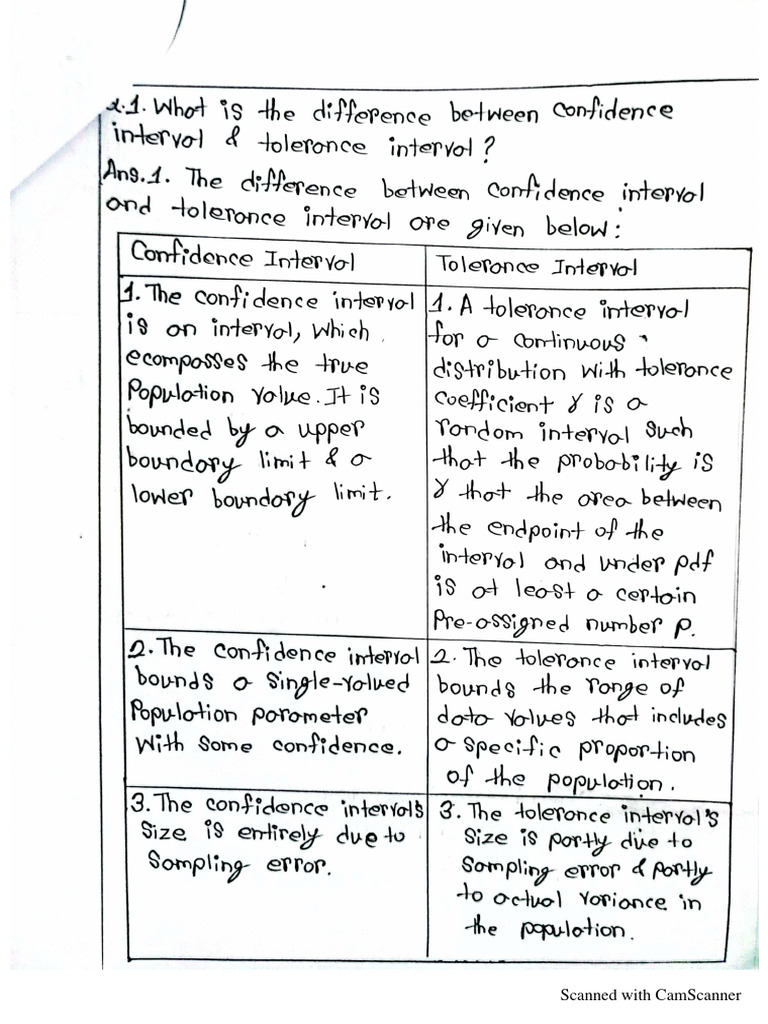 2.1. What is the difference between confidence
interval & tolerance interval?
Ans.1. The difference between confidence interval
and tolerance interval are given below:
Confidence Interval
1. The confidence interval
is an interval, which
ecompasses the true
Population value. It is
bounded by a upper
boundary limit & a
lower boundary limit.
Tolerance Interval
1. A tolerance interval
for a continuous
distribution with tolerance
coefficient γ is a
random interval such
that the probability is
γ that the area between
the endpoint of the
interval and under pdf
is at least a certain
Pre-assigned number p.
2. The confidence interval
bounds a single-valued
Population parameter
with some confidence.
2. The tolerance interval
bounds the range of
data values that includes
a specific proportion
of the population.
3. The confidence interval's
size is entirely due to
sampling error.
3. The tolerance interval's
size is partly due to
sampling error & partly
to actual variance in
the population.
Scanned with CamScanner